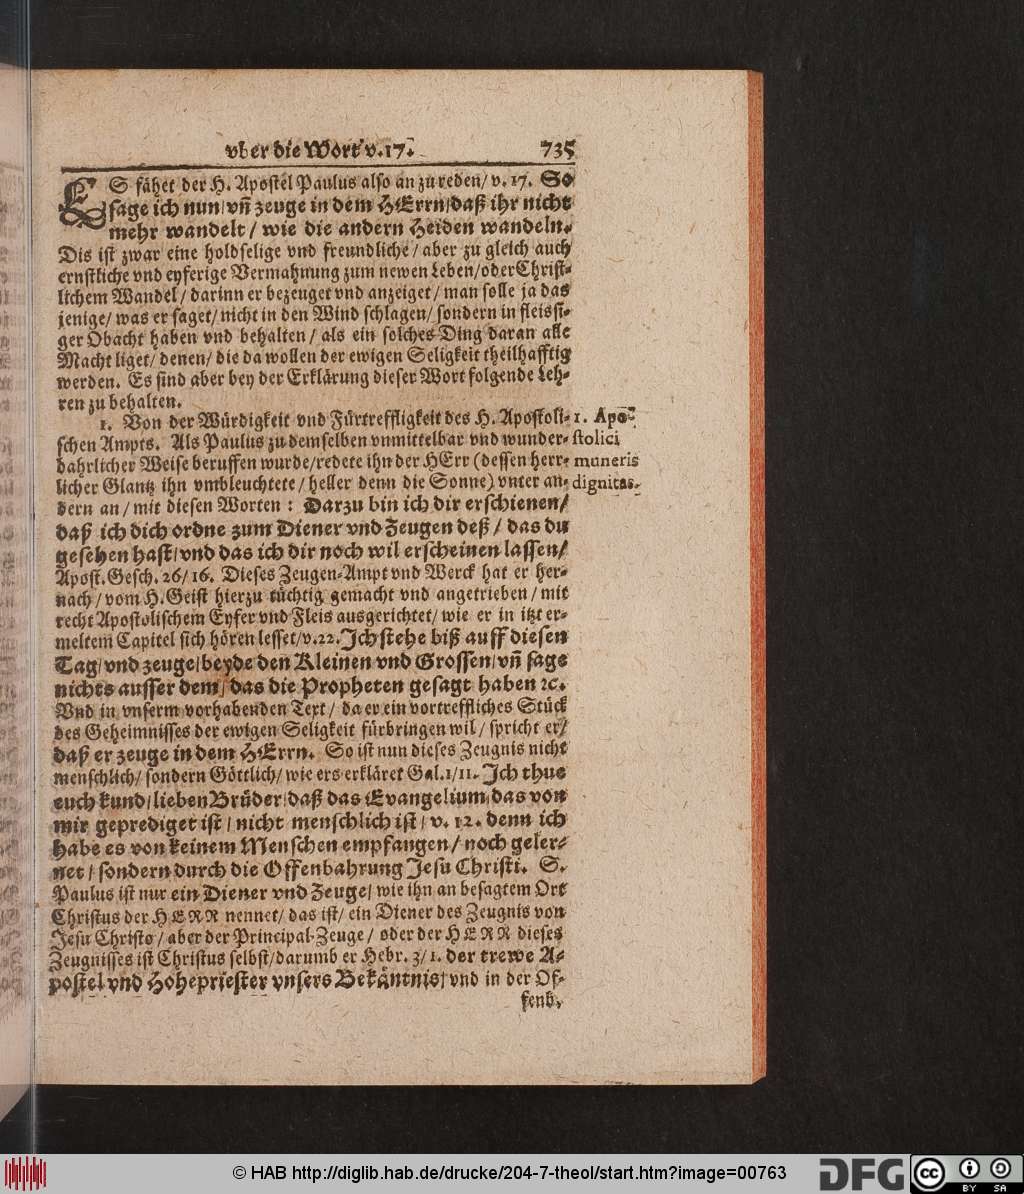 vber die Wort v. 17. 735
ES fähet der H. Apostel Paulus also an zu reden/ v. 17. So
sage ich nun/ vn̄ zeuge in dem HErrn/ daß ihr nicht
mehr wandelt / wie die andern Heiden wandeln.
Dis ist zwar eine holdselige vnd freundliche / aber zu gleich auch
ernstliche vnd eyferige Vermahnung zum newen Leben/ oder Christ-
lichem Wandel / darinn er bezeuget vnd anzeiget / man solle ja das
jenige/ was er saget/ nicht in den Wind schlagen/ sondern in fleissi-
ger Obacht haben vnd behalten / als ein solches Ding daran alle
Macht liget/ denen/ die da wollen der ewigen Seligkeit theilhafftig
werden. Es sind aber bey der Erklärung dieser Wort folgende Leh-
ren zu behalten.
1. Von der Würdigkeit vnd Fürtreffligkeit des H. Apostoli-
schen Ampts. Als Paulus zu demselben vnmittelbar vnd wunder-
bahrlicher Weise beruffen wurde/ redete ihn der HErr (dessen herr-
licher Glantz ihn vmbleuchtete / heller denn die Sonne) vnter an-
dern an / mit diesen Worten : Darzu bin ich dir erschienen/
daß ich dich ordne zum Diener vnd Zeugen deß / das du
gesehen hast/ vnd das ich dir noch wil erscheinen lassen/
Apost. Gesch. 26/ 16. Dieses Zeugen-Ampt vnd Werck hat er her-
nach / vom H. Geist hierzu tüchtig gemacht vnd angetrieben / mit
recht Apostolischem Eyfer vnd Fleis ausgerichtet/ wie er in itzt er-
meltem Capitel sich hören lesset/ v. 22. Ich stehe biß auff diesen
Tag/ vnd zeuge/ beyde den Kleinen vnd Grossen/ vn̄ sage
nichts ausser dem/ das die Propheten gesagt haben ꝛc.
Vnd in vnserm vorhabenden Text / da er ein vortreffliches Stück
des Geheimnisses der ewigen Seligkeit fürbringen wil / spricht er/
daß er zeuge in dem HErrn. So ist nun dieses Zeugnis nicht
menschlich/ sondern Göttlich/ wie ers erkläret Gal. 1/ 11. Ich thue
euch kund/ lieben Brüder/ daß das Evangelium/ das von
mir geprediget ist / nicht menschlich ist / v. 12. denn ich
habe es von keinem Menschen empfangen / noch geler-
net / sondern durch die Offenbahrung Jesu Christi. S.
Paulus ist nur ein Diener vnd Zeuge/ wie ihn an besagtem Ort
Christus der HERR nennet/ das ist/ ein Diener des Zeugnis von
Jesu Christo / aber der Principal-Zeuge / oder der HERR dieses
Zeugnisses ist Christus selbst/ darumb er Hebr. 3/ 1. der trewe A-
postel vnd Hohepriester vnsers Bekäntnis/ vnd in der Of-
fenb.
1. Apo-
stolici
muneris
dignitas.
© HAB http://diglib.hab.de/drucke/204-7-theol/start.htm?image=00763
DFG
cc BY SA